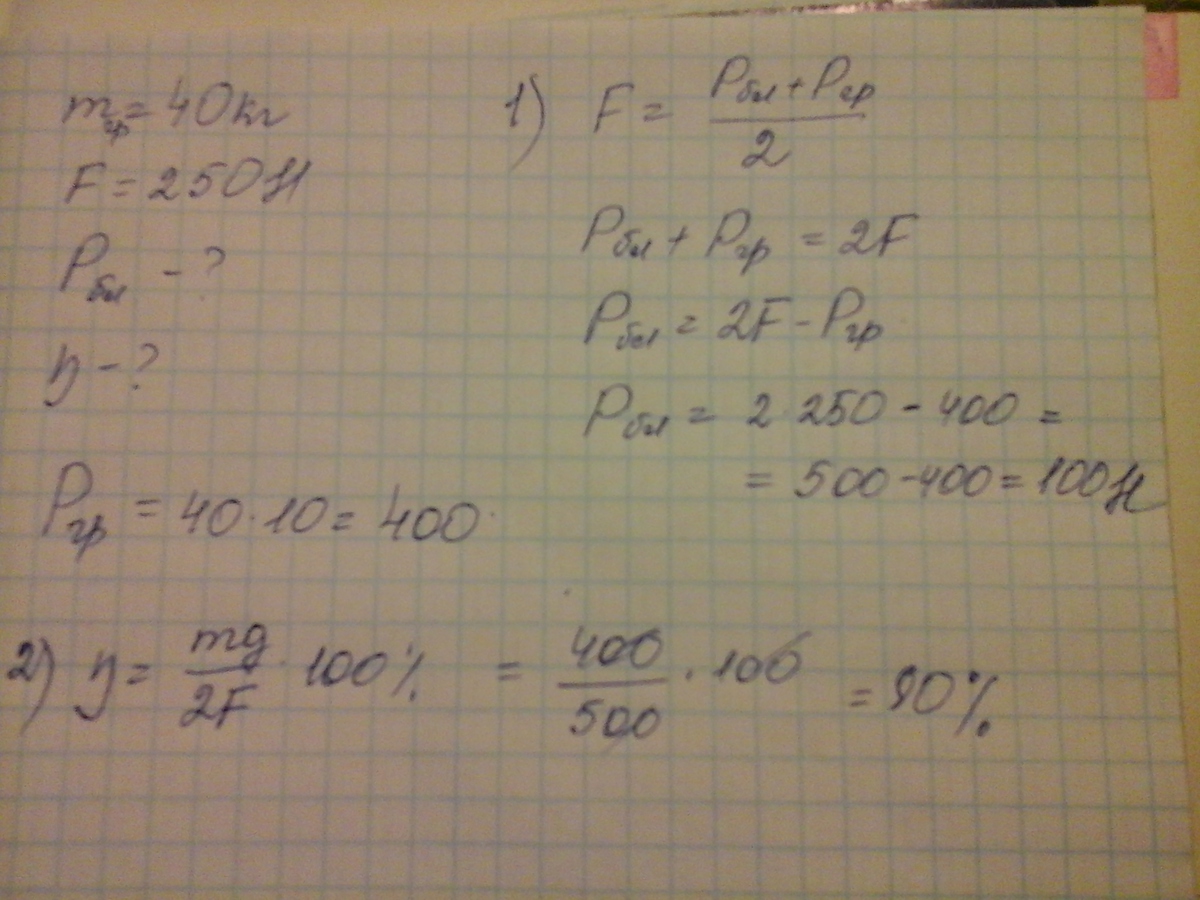 m гр = 40 кг
F = 250 Н
P бл - ?
η - ?
P гр = 40 · 10 = 400
1) F = (P бл + P гр) / 2
P бл + P гр = 2F
P бл = 2F - P гр
P бл = 2 · 250 - 400 =
= 500 - 400 = 100 Н
2) η = mg / 2F · 100% = 400 / 500 · 100 = 80%